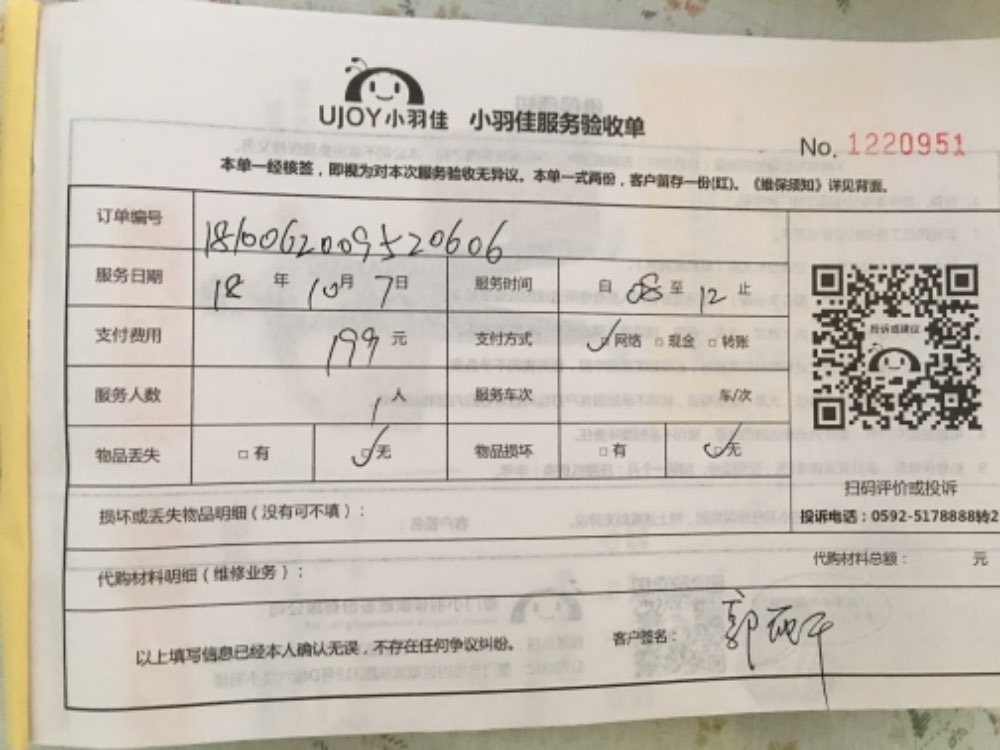 UJOY小羽佳 小羽佳服务验收单
No. 1220951
本单一经核签，即视为对本次服务验收无异议。本单一式两份，客户留存一份(红)。《维保须知》详见背面。
订单编号 181006200952​0606
服务日期 18 年 10 月 7 日 服务时间 自 08 至 12 止
支付费用 199 元 支付方式 网络 现金 转账
投诉或建议
服务人数 1 人 服务车次 车/次
物品丢失 有 无 物品损坏 有 无
扫码评价或投诉
损坏或丢失物品明细（没有可不填）：
投诉电话：0592-5178888转2
代购材料明细（维修业务）： 代购材料总额： 元
以上填写信息已经本人确认无误，不存在任何争议纠纷。 客户签名： 郭